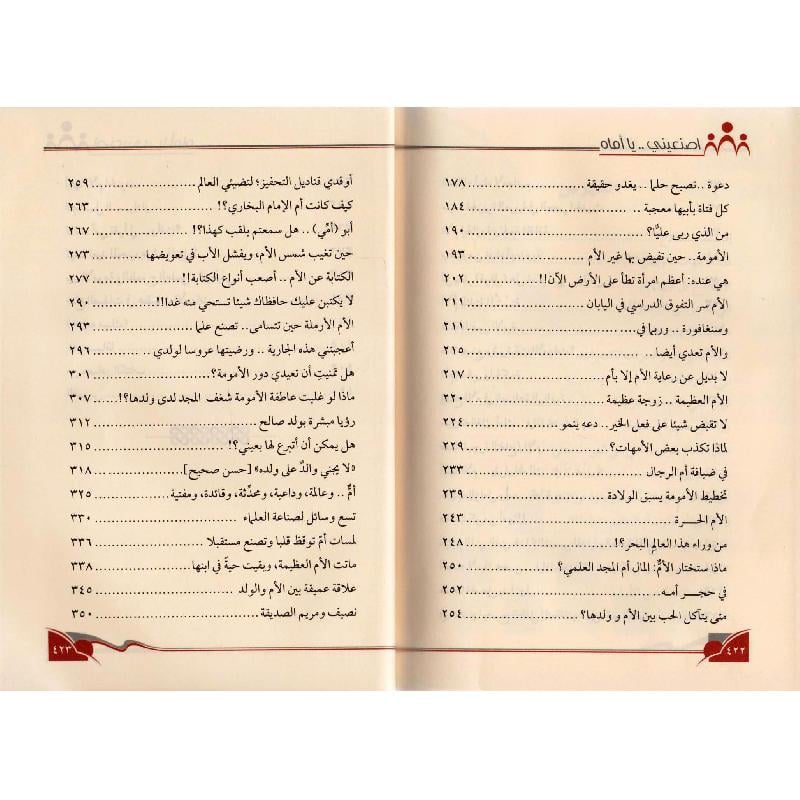 اصنعيني .. يا أماه
دعوة .. تصبح حلما .. يغدو حقيقة ١٧٨
كل فتاة بأبيها معجبة .. ١٨٤
من الذي ربى عليًّا؟ ١٩٠
الأمومة .. حين تفيض بها غير الأم ١٩٣
هي عنده: أعظم امرأة تطأ على الأرض الآن!! ٢٠٢
الأم سر التفوق الدراسي في اليابان ٢١١
وسنغافورة .. وربما في ٢١١
والأم تعدي أيضا ٢١٥
لا بديل عن رعاية الأم إلا بأم ٢١٧
الأم العظيمة .. زوجة عظيمة ٢٢٠
لا تقبض شيئا على فعل الخير .. دعه ينمو ٢٢٤
لماذا تكذب بعض الأمهات؟ ٢٢٩
في ضيافة أم الرجال ٢٣٣
تخطيط الأمومة يسبق الولادة ٢٣٩
الأم الحرة ٢٤٣
من وراء هذا العالم البحر؟! ٢٤٨
ماذا ستختار الأمُّ: المال أم المجد العلمي؟ ٢٥٠
في حجر أمه ٢٥٢
متى يتآكل الحب بين الأم و ولدها؟ ٢٥٤
٤٢٢
أوقدي قناديل التحفيز؛ لتضيئي العالم ٢٥٩
كيف كانت أم الإمام البخاري؟! ٢٦٣
أبو (أمِّي) .. هل سمعتم بلقب كهذا؟! ٢٦٧
حين تغيب شمس الأم، ويفشل الأب في تعويضها ٢٧٣
الكتابة عن الأم .. أصعب أنواع الكتابة!! ٢٧٧
لا يكتبن عليك حافظاك شيئا تستحي منه غدا!! ٢٩٠
الأم الأرملة حين تتسامى .. تصنع علما ٢٩٣
أعجبتني هذه الجارية .. ورضيتها عروسا لولدي ٢٩٦
هل تمنيتِ أن تعيدي دور الأمومة؟ ٣٠١
ماذا لو غلبت عاطفة الأمومة شغف المجد لدى ولدها؟! ٣٠٧
رؤيا مبشرة بولد صالح ٣١٢
هل يمكن أن أتبرع لها بعيني؟! ٣١٥
«لا يجني والدٌ على ولده» [حسن صحيح] ٣١٨
أمٌّ .. وعالمة، وداعية، ومحدِّثة، وقائدة، ومفتية ٣٢٥
تسع وسائل لصناعة العلماء ٣٣٠
لمسات أمّ توقظ قلبا وتصنع مستقبلا ٣٣٦
ماتت الأم العظيمة، وبقيت حيةً في ابنها ٣٣٨
علاقة عميقة بين الأم والولد ٣٤٥
نصيف ومريم الصديقة ٣٥٠
٤٢٣